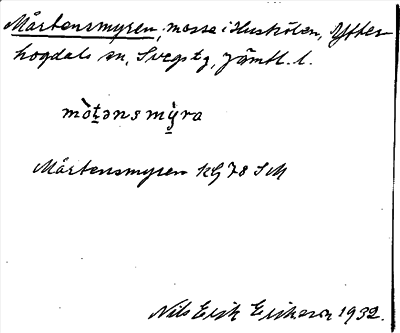 Mårtensmyren, mosse i Huskölen, Ytter-
hogdals sn, Svegs tg, Jämtl. l.
mò̱təns mỳ̱ra
Mårtensmyren KG 78 SM
Nils Erik Erikson 1932.